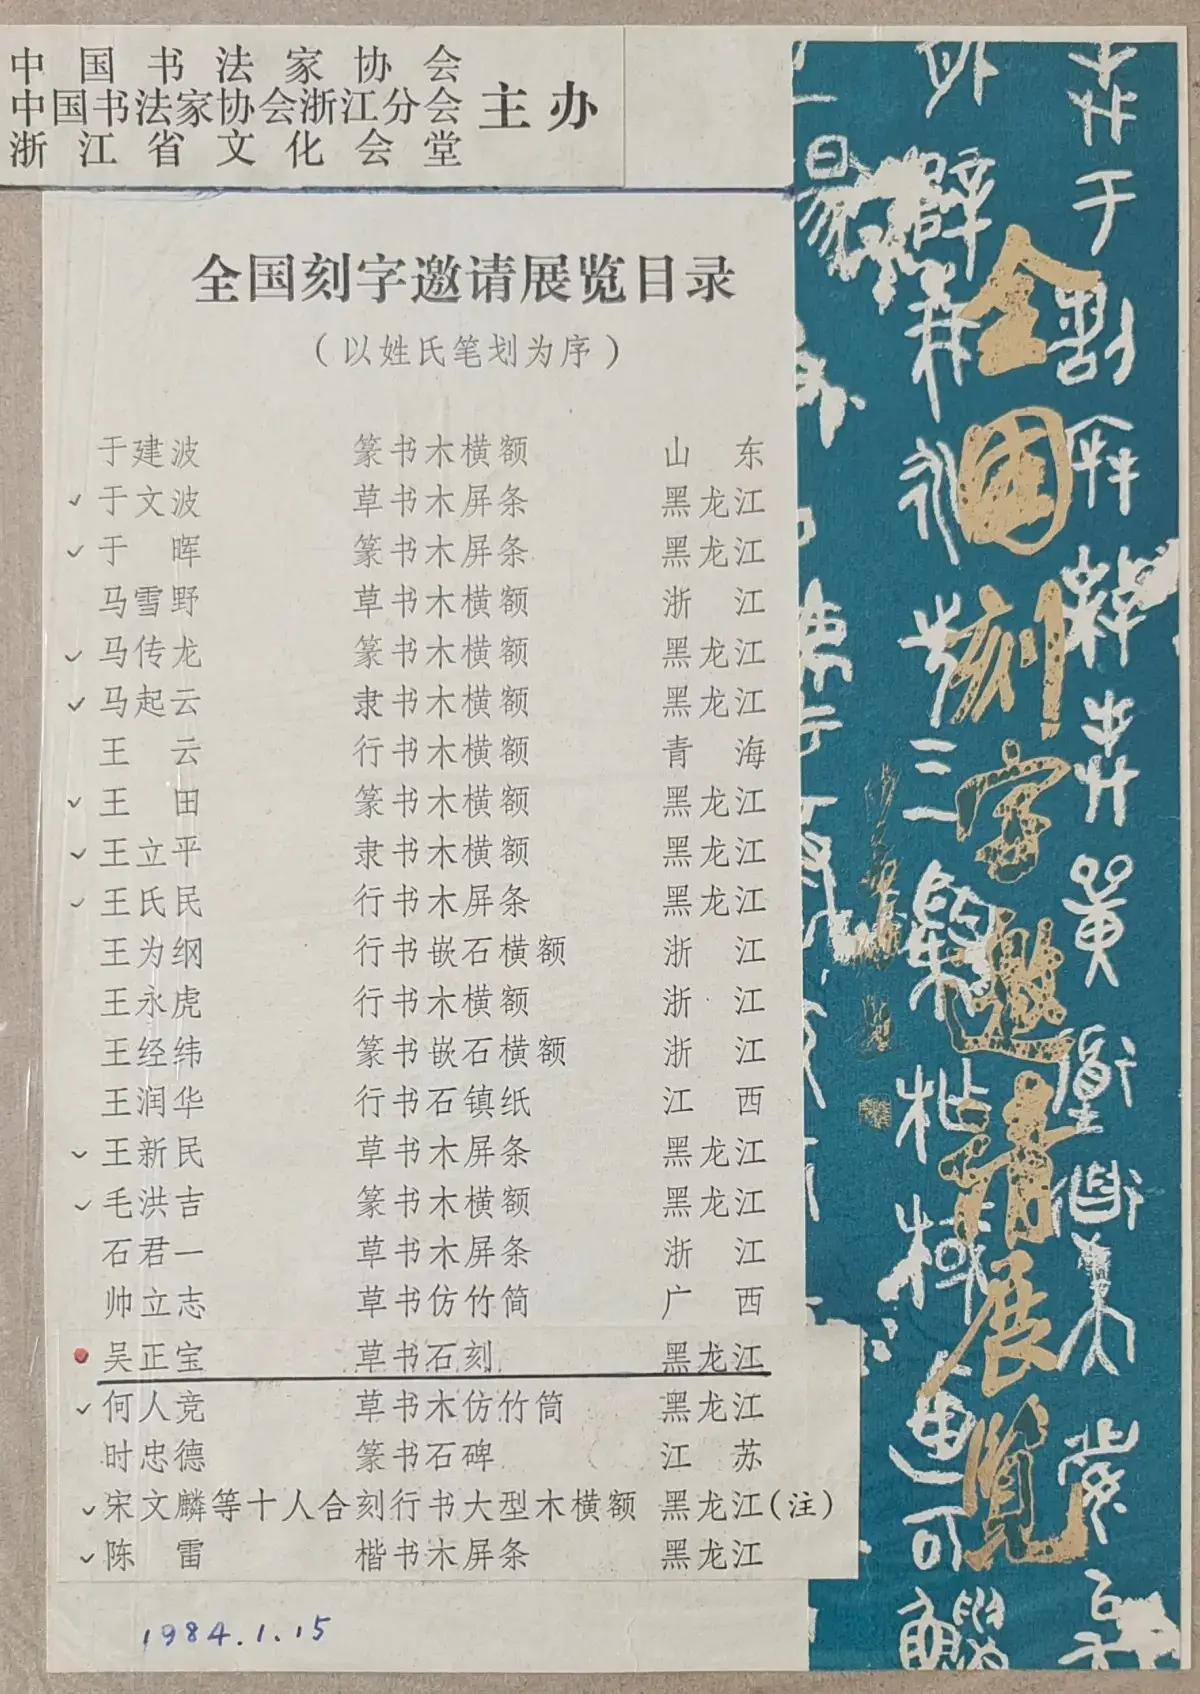 中国书法家协会
中国书法家协会浙江分会
浙江省文化会堂
主办
全国刻字邀请展览目录
（以姓氏笔划为序）
于建波 篆书木横额 山东
✓ 于文波 草书木屏条 黑龙江
✓ 于晖 篆书木屏条 黑龙江
马雪野 草书木横额 浙江
✓ 马传龙 篆书木横额 黑龙江
✓ 马起云 隶书木横额 黑龙江
王云 行书木横额 青海
✓ 王田 篆书木横额 黑龙江
✓ 王立平 隶书木横额 黑龙江
✓ 王氏民 行书木屏条 黑龙江
王为纲 行书嵌石横额 浙江
王永虎 行书木横额 浙江
王经纬 篆书嵌石横额 浙江
王润华 行书石镇纸 江西
✓ 王新民 草书木屏条 黑龙江
✓ 毛洪吉 篆书木横额 黑龙江
石君一 草书木屏条 浙江
帅立志 草书仿竹简 广西
吴正宝 草书石刻 黑龙江
✓ 何人竞 草书木仿竹简 黑龙江
时忠德 篆书石碑 江苏
✓ 宋文麟等十人合刻行书大型木横额 黑龙江(注)
✓ 陈雷 楷书木屏条 黑龙江
1984.1.15
全国刻字邀请展览